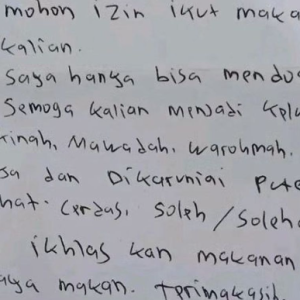 mohon izin ikut maka
kalian.
saya hanya bisa mendo
Semoga kalian menjadi kelu
inah, Mawadah, warohmah.
sa dan Dikaruniai Pute
hat. Cerdas, soleh / Soleh
ikhlas kan makanan
aya makan. terimakasih